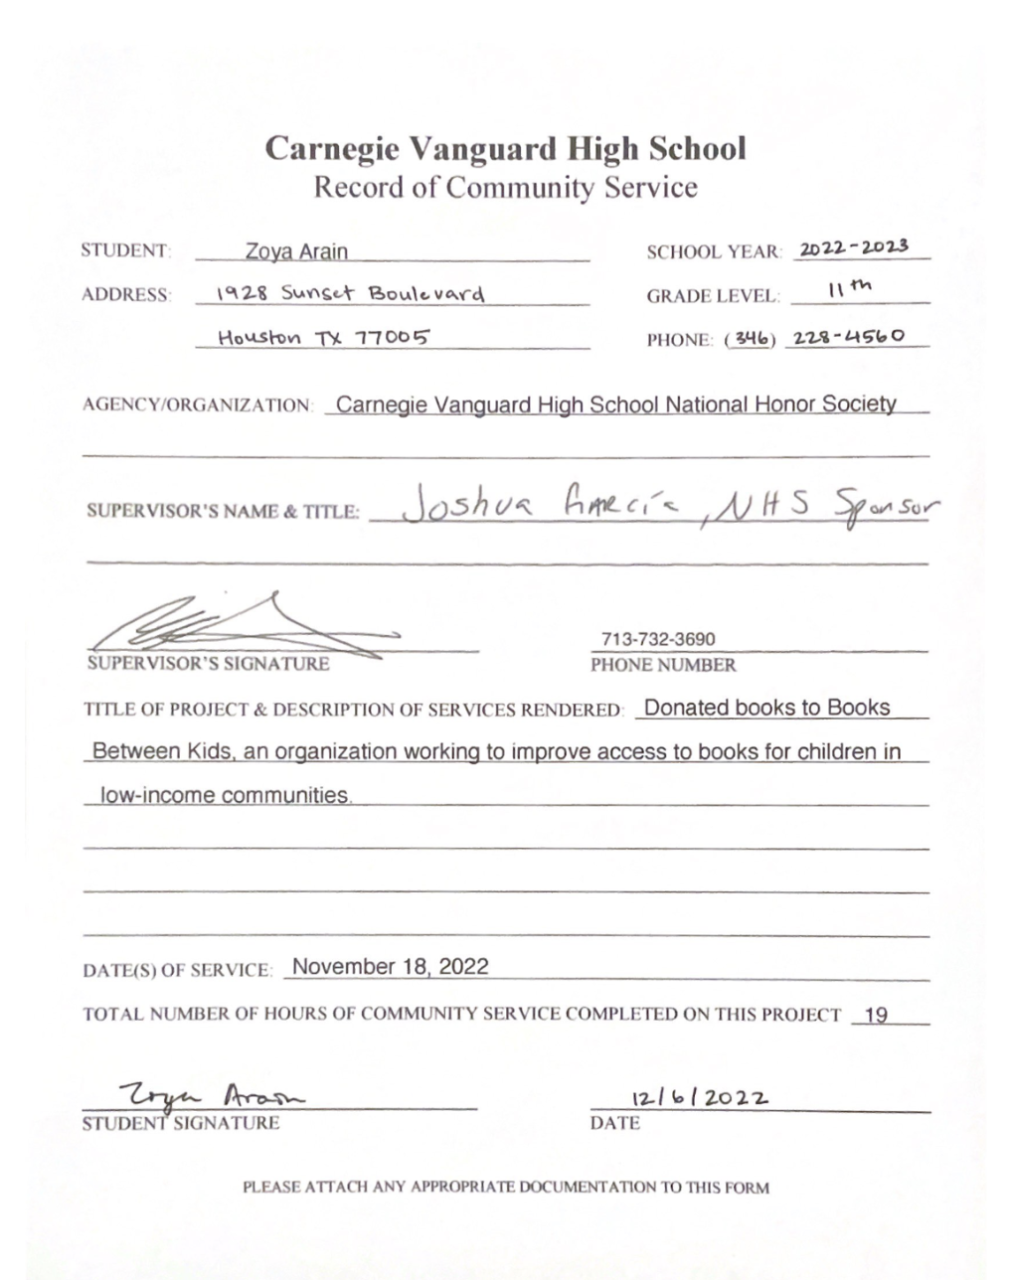 Carnegie Vanguard High School
Record of Community Service
STUDENT: Zoya Arain SCHOOL YEAR: 2022-2023
ADDRESS: 1928 Sunset Boulevard GRADE LEVEL: 11th
Houston TX 77005 PHONE: (346) 228-4560
AGENCY/ORGANIZATION: Carnegie Vanguard High School National Honor Society
SUPERVISOR'S NAME & TITLE: Joshua García, NHS Sponsor
713-732-3690
SUPERVISOR'S SIGNATURE PHONE NUMBER
TITLE OF PROJECT & DESCRIPTION OF SERVICES RENDERED: Donated books to Books
Between Kids, an organization working to improve access to books for children in
low-income communities.
DATE(S) OF SERVICE: November 18, 2022
TOTAL NUMBER OF HOURS OF COMMUNITY SERVICE COMPLETED ON THIS PROJECT 19
Zoya Arain 12/6/2022
STUDENT SIGNATURE DATE
PLEASE ATTACH ANY APPROPRIATE DOCUMENTATION TO THIS FORM